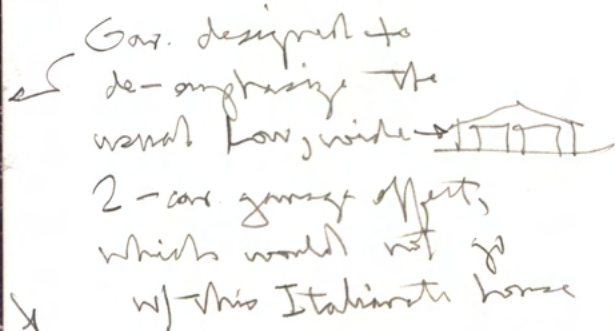 Gar. designed to
de-emphasize the
usual low, wide
2-car garage effect,
which would not go
w/ this Italianate house